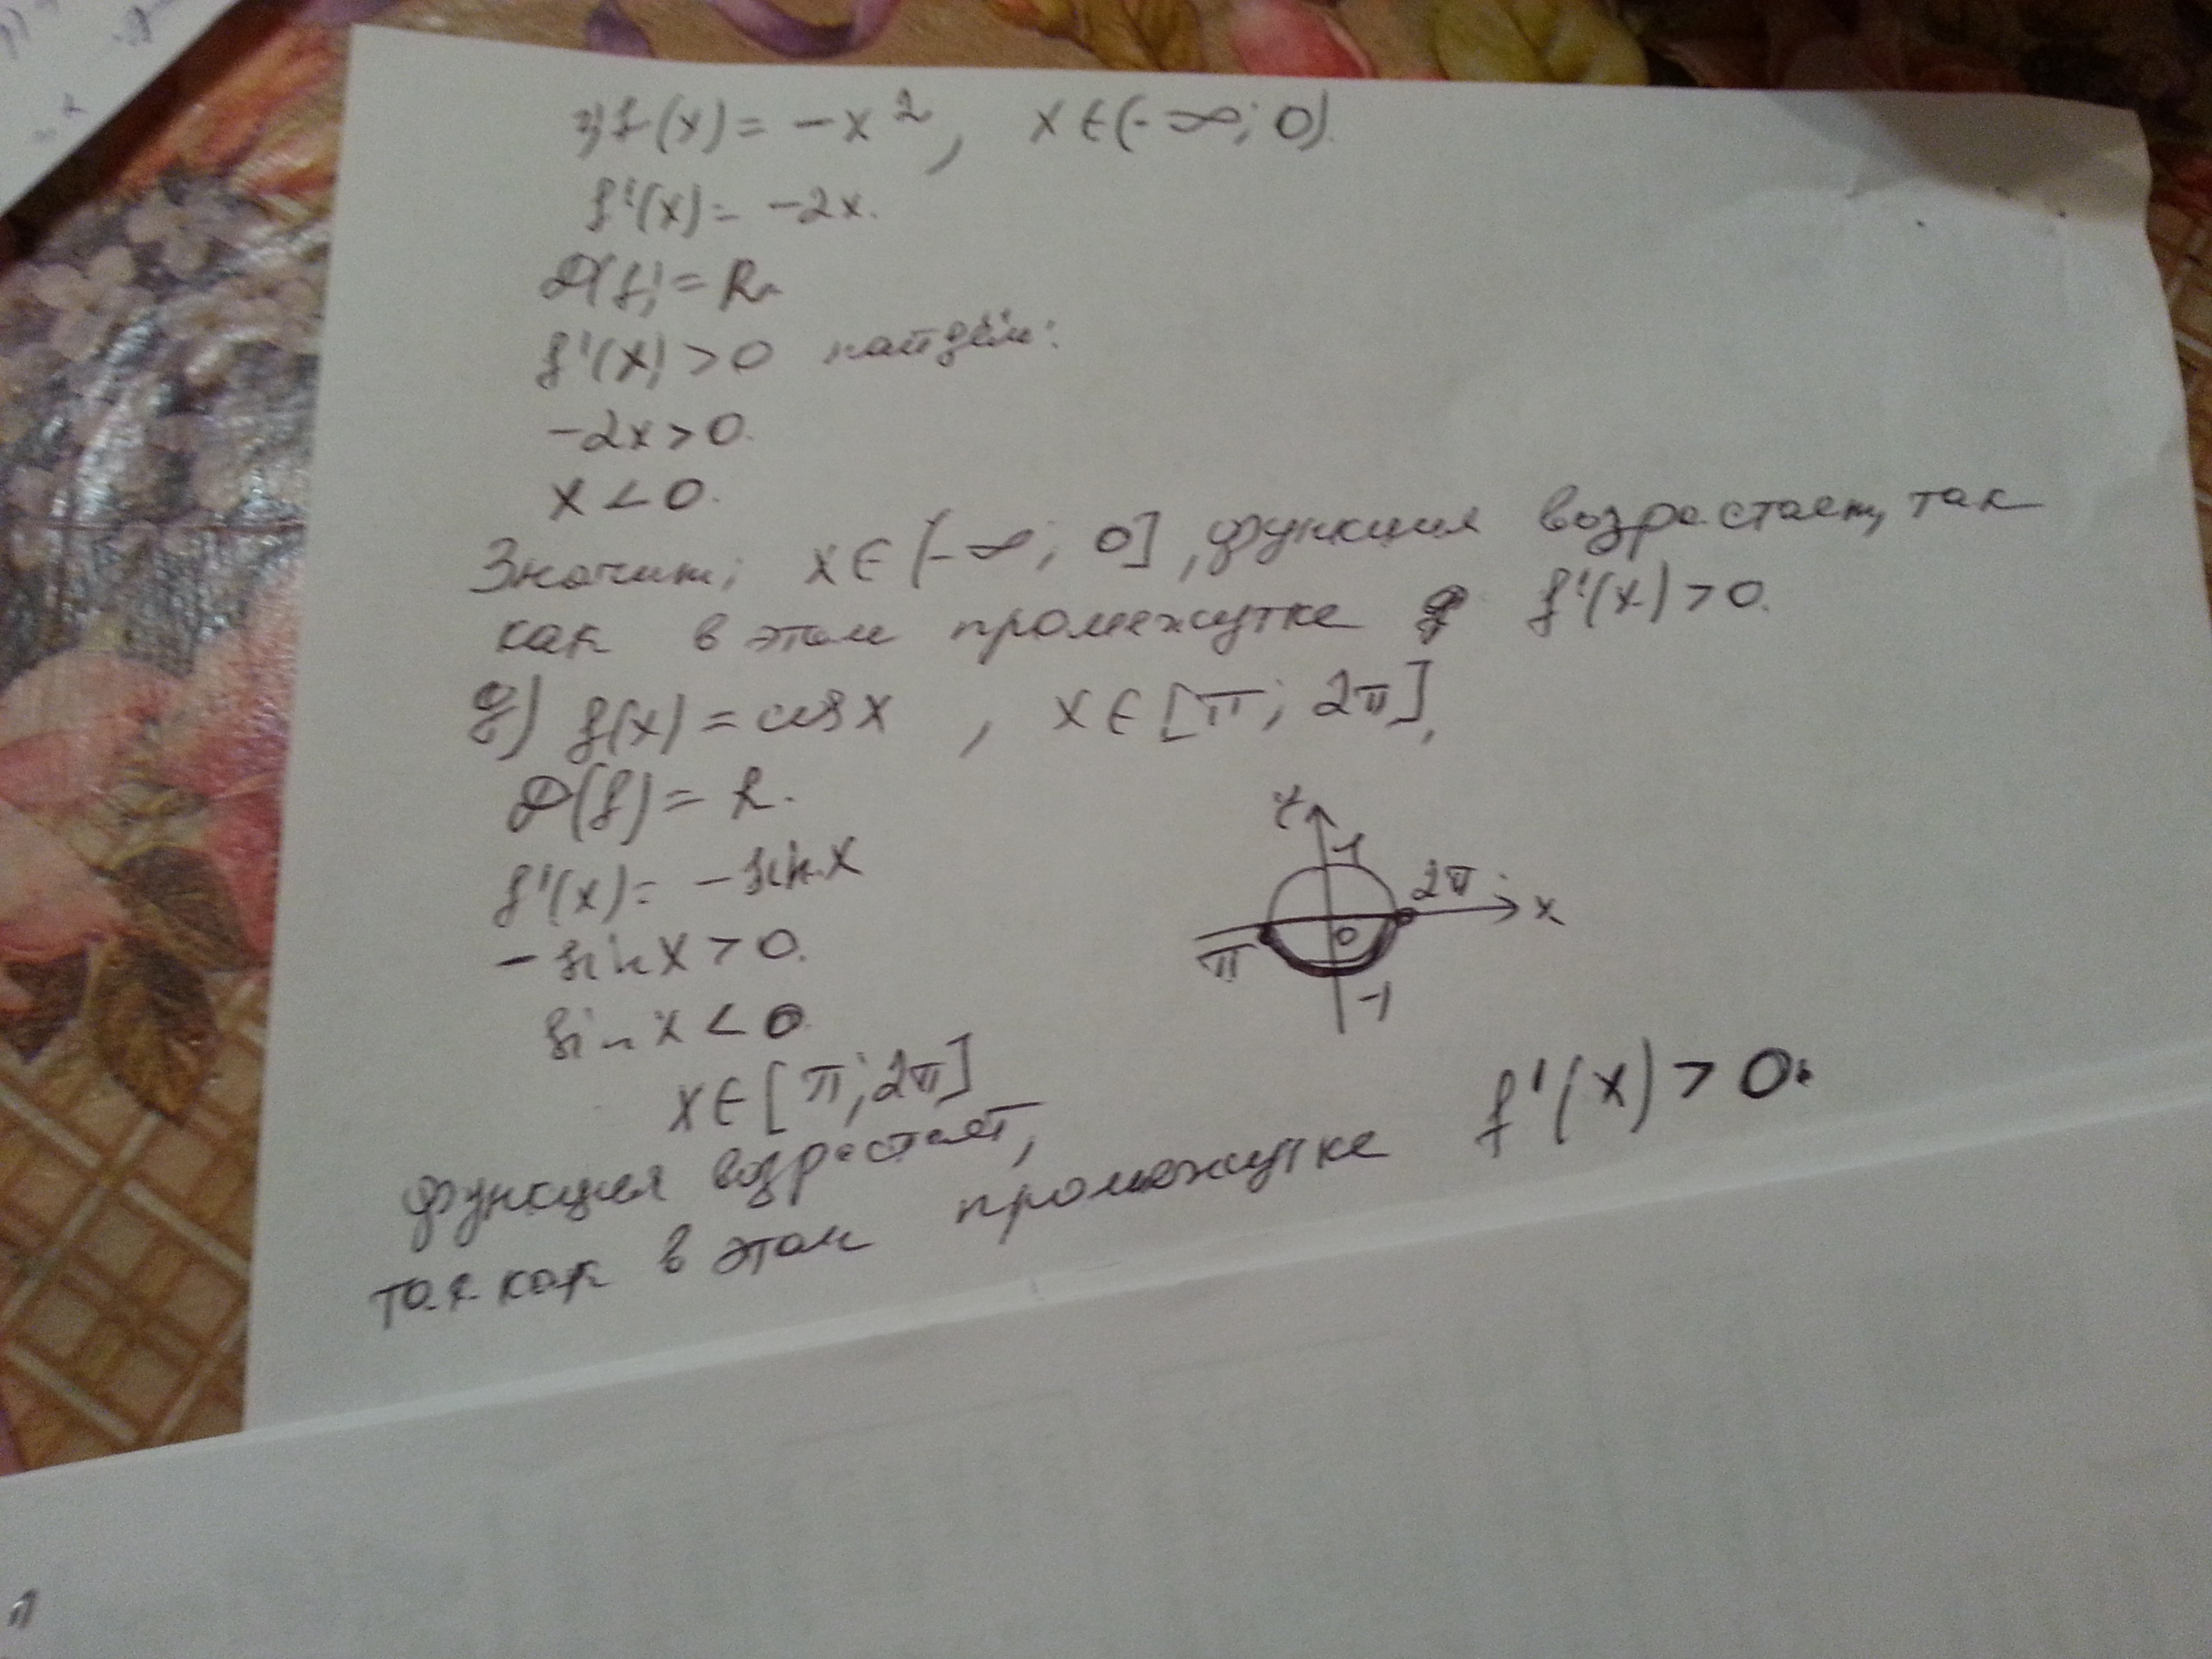 з) f(x) = -x², x∈(-∞; 0).
f'(x) = -2x.
D(f) = R.
f'(x) > 0 найдём:
-2x > 0.
x < 0.
Значит, x∈(-∞; 0], функция возрастает, так
как в этом промежутке f'(x) > 0.
g) f(x) = cos x , x∈[π; 2π],
D(f) = R.
f'(x) = -sin x
-sin x > 0.
sin x < 0
x∈[π; 2π]
y
1
2π
x
0
π
-1
функция возрастает,
так как в этом промежутке f'(x) > 0.